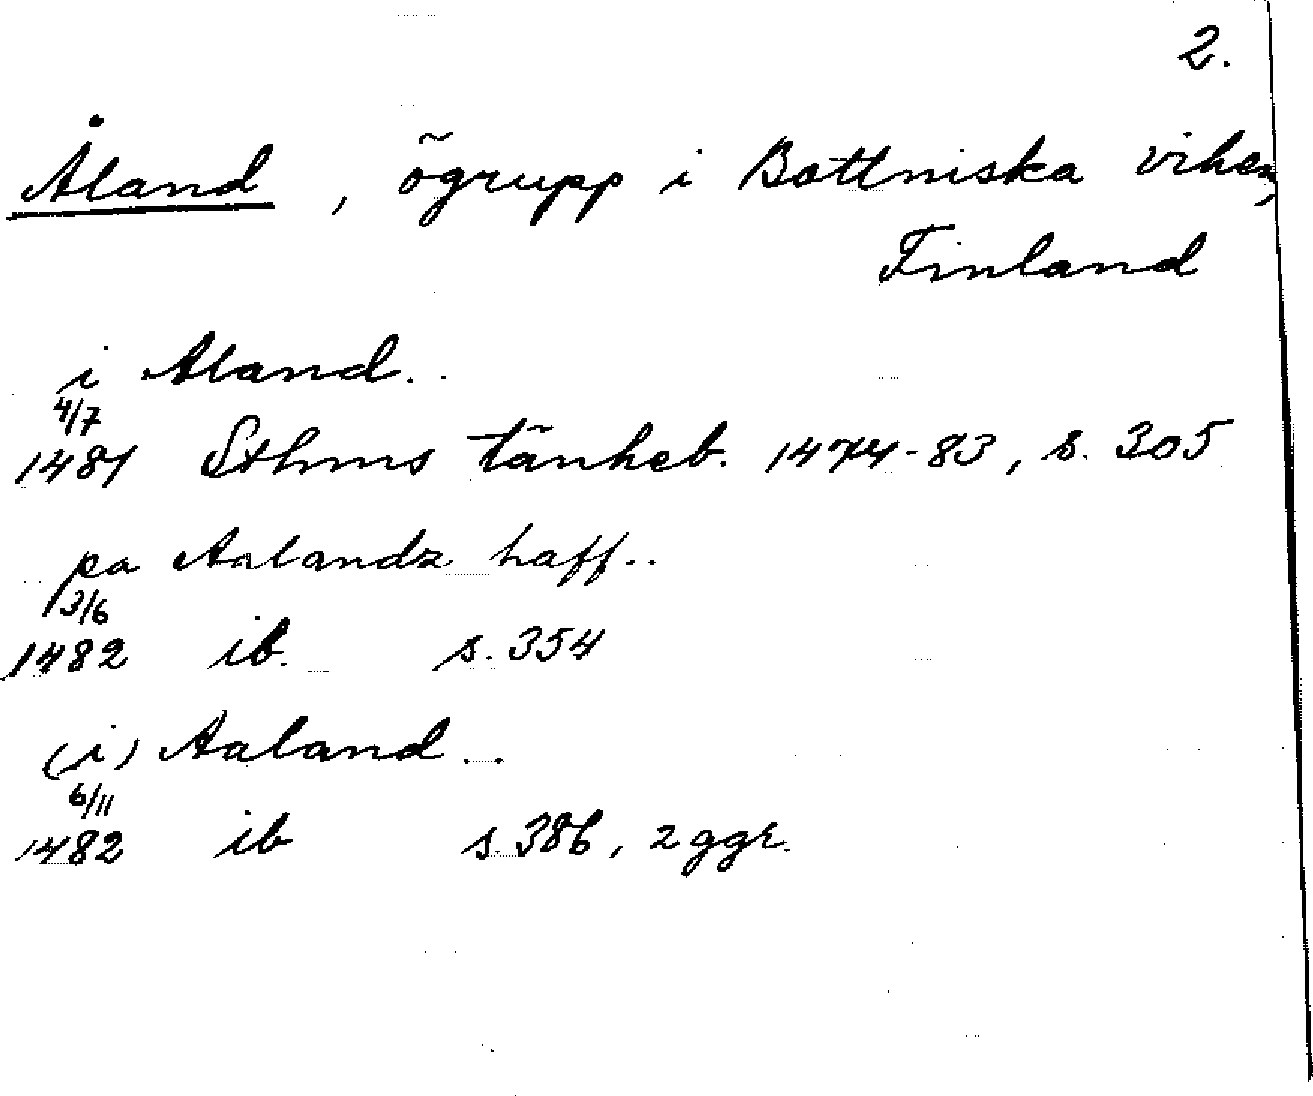 2.
Åland, ögrupp i Bottniska viken,
Finland
i Aland..
4/7
1481 Sthms tänkeb. 1474-83, s. 305
pa Aalandz haff..
3/6
1482 ib. s. 354
(i) Aaland..
6/11
1482 ib s. 386, 2 ggr.